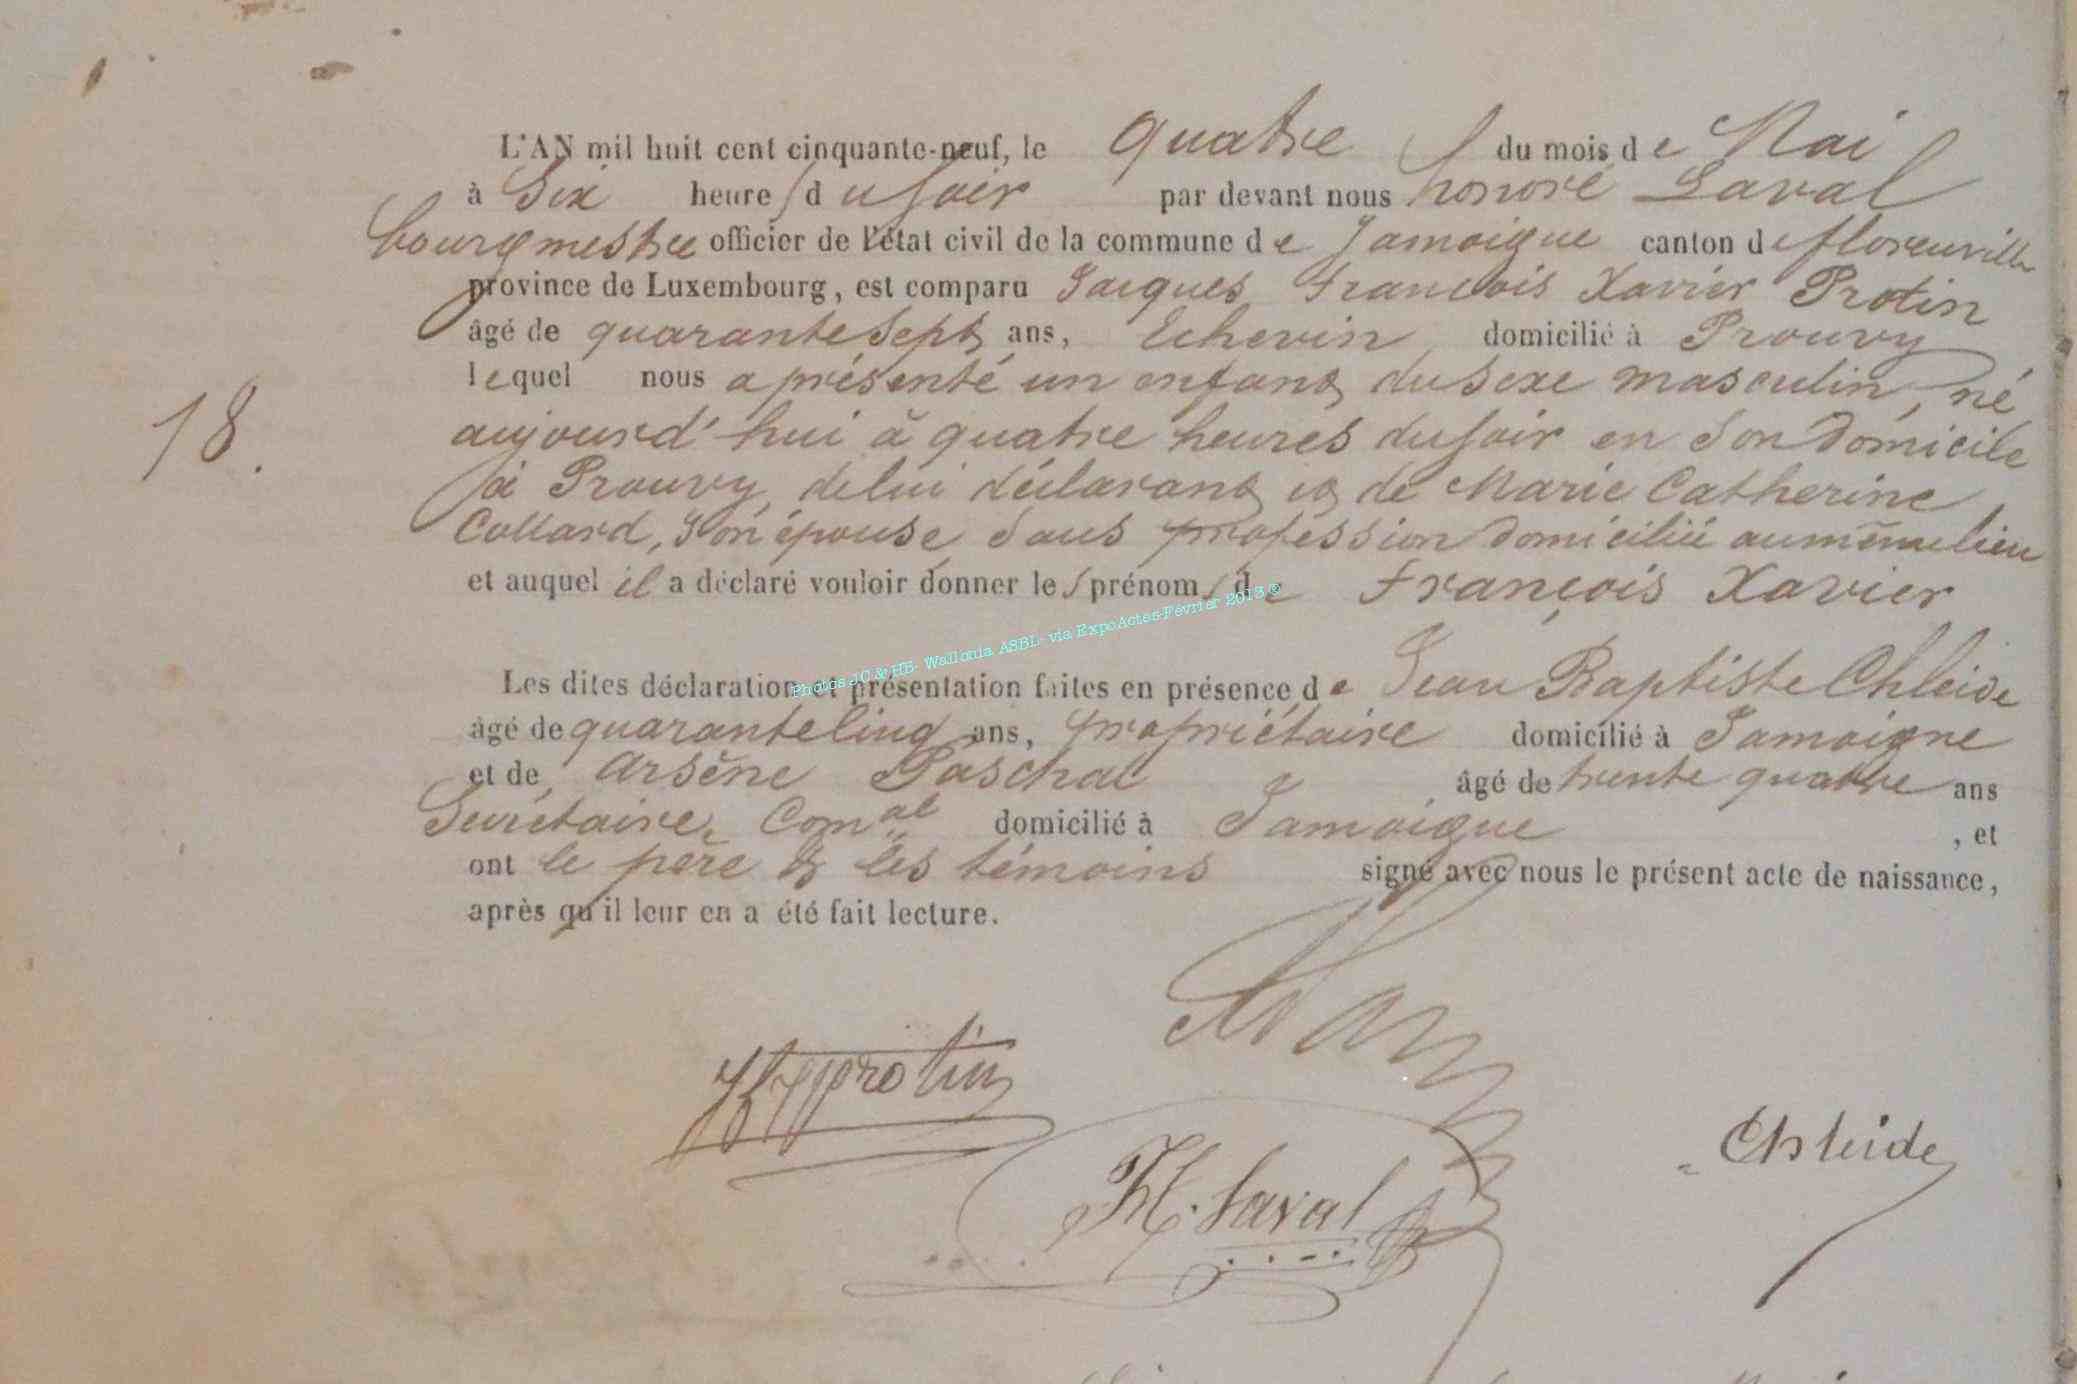 L'AN mil huit cent cinquante-neuf, le quatre du mois de Mai
à Six heures du soir par devant nous honoré Laval
bourgmestre officier de l'état civil de la commune de Jamoigne canton de florenville
province de Luxembourg, est comparu Jacques François Xavier Protin
âgé de quarante sept ans, Echevin domicilié à Prouvy
18. lequel nous a présenté un enfant du sexe masculin, né
aujourd'hui à quatre heures du soir en son domicile
à Prouvy, de lui déclarant et de Marie Catherine
Collard, son épouse, sans profession domiciliée au même lieu
et auquel il a déclaré vouloir donner les prénoms de François Xavier
Photos JC & HB- Wallonia ASBL- via ExpoActes-Février 2013 ©
Les dites déclaration et présentation faites en présence de Jean Baptiste Chleide
âgé de quarante cinq ans, propriétaire domicilié à Jamoigne
et de Arsène Paschal âgé de trente quatre ans
Secrétaire Com.al domicilié à Jamoigne, et
ont le père et les témoins signé avec nous le présent acte de naissance,
après qu'il leur en a été fait lecture.
protin
H. Laval
Chleide